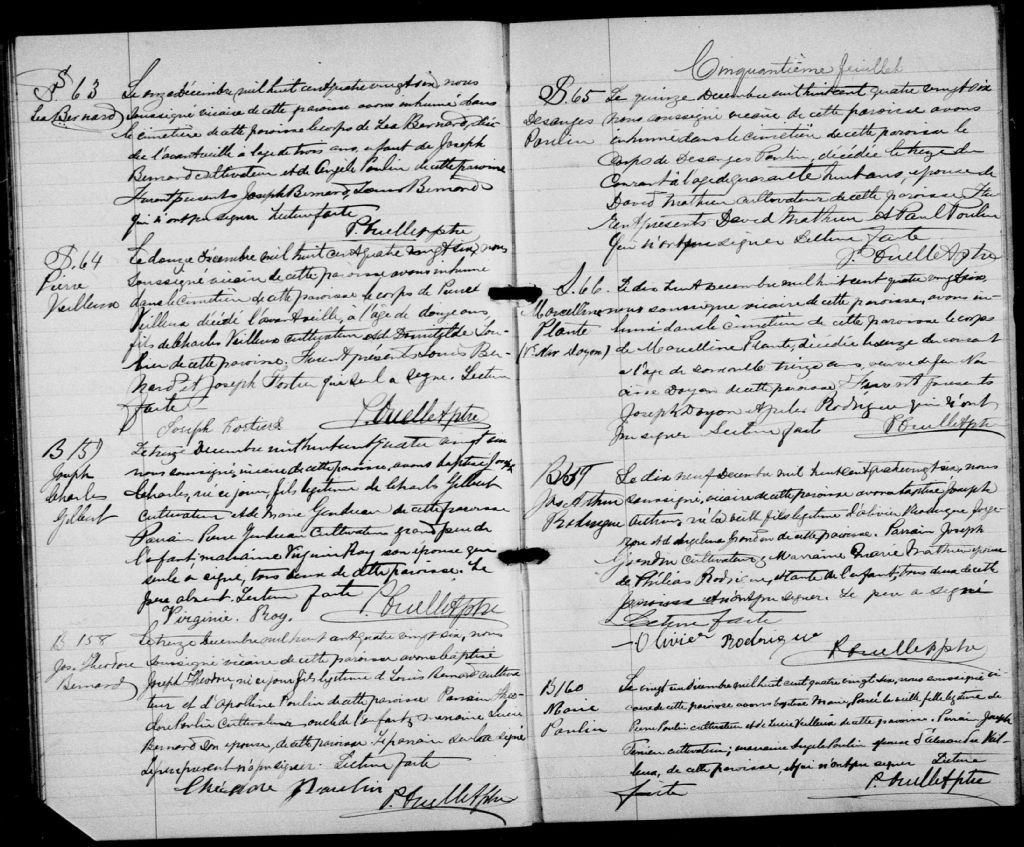 S. 63
Lea Bernard
Le onze décembre mil huit cent quatre vingt six nous
soussigné vicaire de cette paroisse avons inhumé dans
le cimetière de cette paroisse le corps de Lea Bernard, décé-
dée l'avant veille à l'age de trois ans, enfant de Joseph
Bernard cultivateur et de Angele Poulin de cette paroisse
Furent présents Joseph Bernard, Louis Bernard
qui n'ont pu signer Lecture faite
P. Ouellet Ptre
S. 64
Pierre
Veilleux
Le douze décembre mil huit cent quatre vingt six, nous
soussigné vicaire de cette paroisse avons inhumé
dans le cimetière de cette paroisse le corps de Pierre
Veilleux décédé l'avant veille, à l'age de douze ans,
fils de Charles Veilleux cultivateur et de Domitilde
de cette paroisse. Furent présent Louis Ber-
nard et Joseph Fortier qui seul a signé. Lecture
faite
Joseph Fortier
P. Ouellet Ptre
B 157
Joseph
Charles
Gilbert
Le treize Decembre mil huit cent quatre vingt six
nous soussigné, vicaire de cette paroisse, avons baptisé Joseph
Charles, né ce jour, fils légitime de Charles Gilbert
cultivateur et de Marie Gendreau de cette paroisse
Parrain Pierre Gendreau cultivateur grand père de
l'enfant; marraine Virginie Roy son épouse qui
seule a signé, tous deux de cette paroisse. Le
père absent. Lecture faite
Virginie Roy.
P. Ouellet Ptre
B 158
Jos. Théodore
Bernard
Le treize Decembre mil huit cent quatre vingt six, nous
soussigné vicaire de cette paroisse avons baptisé
Joseph Théodore, né ce jour fils légitime de Louis Bernard cultiva-
teur et d'Apolline Poulin de cette paroisse Parrain Théo-
dore Poulin cultivateur, oncle de l'enfant, marraine
Bernard son épouse, de cette paroisse Le parrain seul a signé
Le père présent n'a pu signer. Lecture faite
Théodore Poulin
P. Ouellet Ptre
Cinquantième feuillet
S. 65
Desanges
Poulin
Le quinze Decembre mil huit cent quatre vingt six
nous soussigné vicaire de cette paroisse avons
inhumé dans le cimetière de cette paroisse le
corps de Desanges Poulin, décédée le treize du
courant à l'age de quarante huit ans, épouse de
David Mathieu cultivateur de cette paroisse Fu-
rent présents David Mathieu et Paul Poulin
qui n'ont pu signer Lecture faite
P. Ouellet Ptre
S. 66.
Marcelline
Plante
(Ve Nar Doyon)
Le dix huit Decembre mil huit cent quatre vingt six,
nous soussigné vicaire de cette paroisse, avons in-
humé dans le cimetière de cette paroisse le corps
de Marcelline Plante, décédée le seize du courant
à l'age de soixante treize ans, veuve de feu Nar-
cisse Doyon de cette paroisse Furent présents
Joseph Doyon et Jules Rodrigue qui n'ont
pu signer Lecture faite
P. Ouellet Ptre
B 159
Jos. Arthur
Rodrigue
Le dix neuf Decembre mil huit cent quatre vingt six, nous
soussigné, vicaire de cette paroisse avons baptisé Joseph
Arthur, né la veille fils légitime d'Olivier Rodrigue
et d'Angelina Grondin de cette paroisse. Parrain Joseph
Grondin cultivateur, Marraine Marie Mathieu épouse
de Philias Rodrigue, et tante de l'enfant, tous deux de cette
paroisse et n'ont pu signer. Le père a signé
Lecture faite
Olivier Rodrigue
P. Ouellet Ptre
B 160
Marie
Poulin
Le vingt un Decembre mil huit cent quatre vingt six, nous soussigné vi-
caire de cette paroisse avons baptisé Marie, née la veille fille légitime de
Pierre Poulin cultivateur et de Lucie Veilleux de cette paroisse. Parrain Joseph
cultivateur; marraine Angele Poulin épouse d'Alexandre Veil-
leux, de cette paroisse, et qui n'ont pu signer Lecture
faite
P. Ouellet Ptre